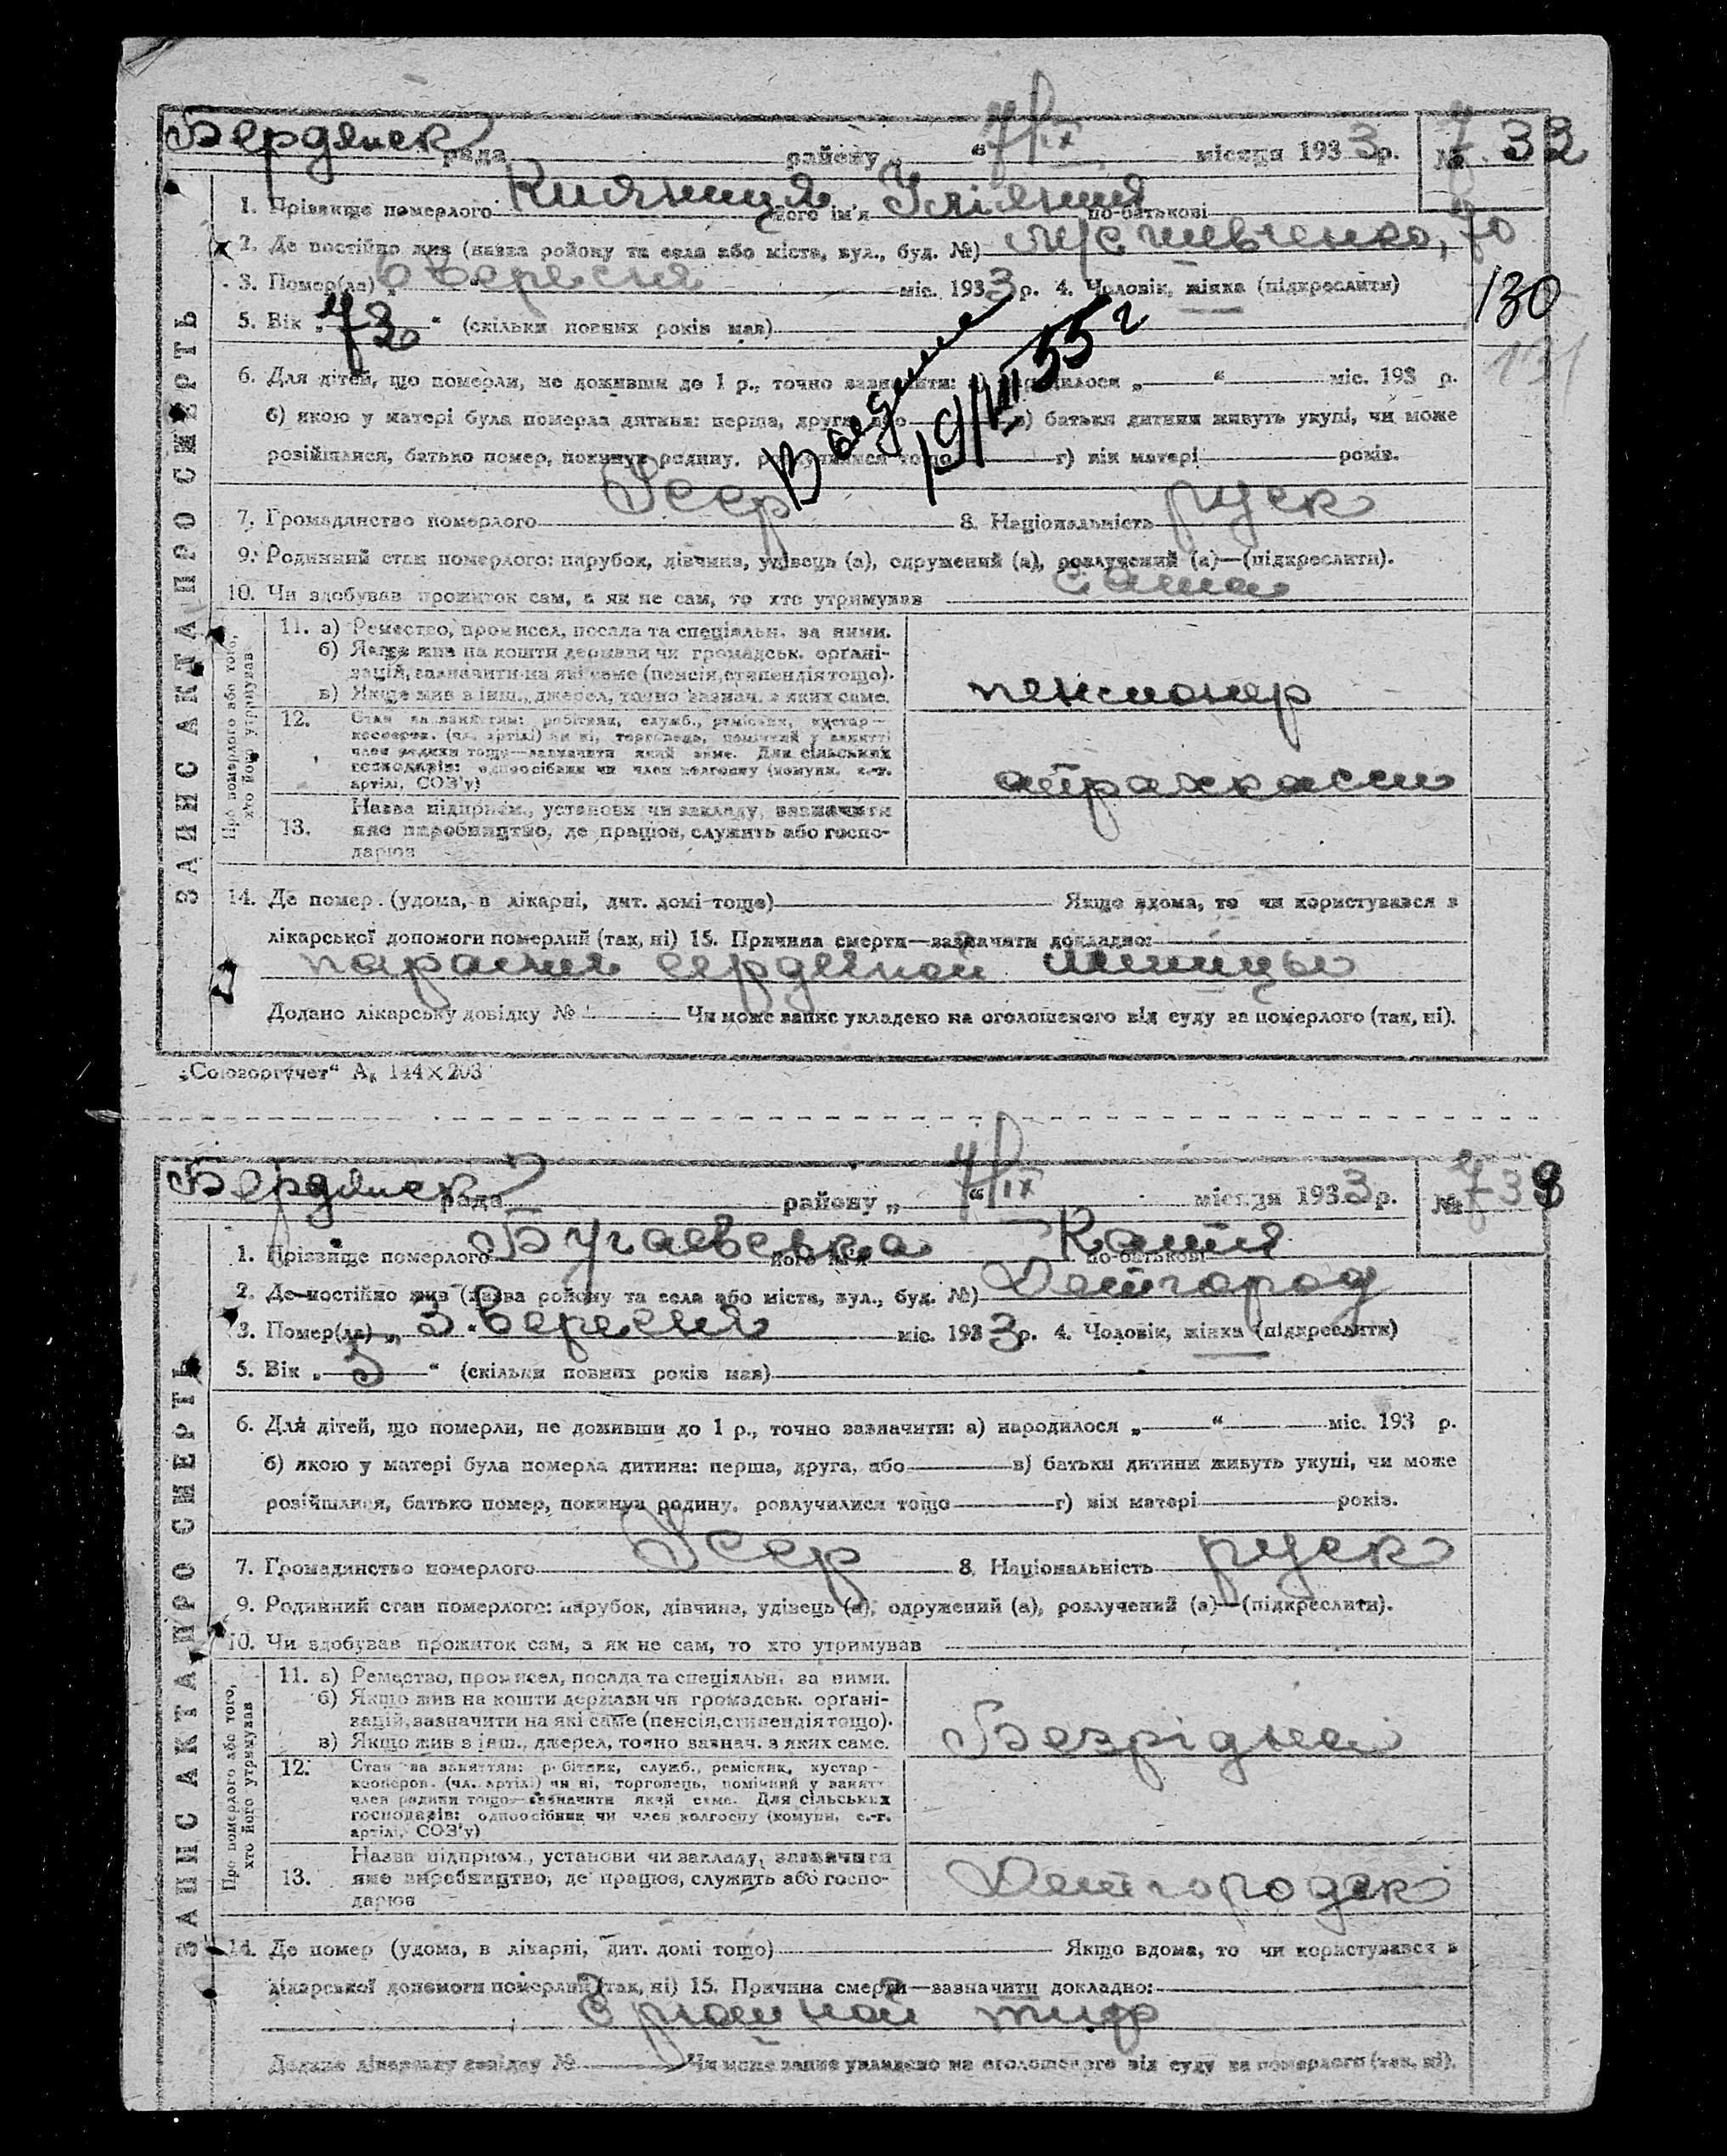 Бердянск рада району „ “ 7/IX місяця 1933 р. № 732
1. Прізвище померлого Княжиця його ім'я Уліяния по-батькові
2. Де постійно жив (назва району та села або міста, вул., буд. №) Шевченко, 70
3. Помер(ла) „6“ Вересня міс. 1933 р. 4. Чоловік, жінка (підкреслити)
130
5. Вік „72“ (скільки повних років мав)
131
19/VIII 55 г
6. Для дітей, що померли, не доживши до 1 р., точно зазначити: а) народилося „ “ міс. 193 р.
б) якою у матері була померла дитина: перша, друга, або в) батьки дитини живуть укупі, чи може
розійшлися, батько помер, покинув родину, розлучилися тощо г) вік матері років.
7. Громадянство померлого Усср 8. Національність руск
9. Родинний стан померлого: парубок, дівчина, удівець (а), одружений (а), розлучений (а)—(підкреслити).
10. Чи здобував прожиток сам, а як не сам, то хто утримував сама
ЗАПИС АКТА ПРО СМЕРТЬ
Про померлого або того, хто його утримував
11. а) Ремество, промисел, посада та спеціяльн. за ними.
б) Якщо жив на кошти держави чи громадськ. органі-
зацій, зазначити на які саме (пенсія, стипендія тощо).
в) Якщо жив з інш. джерел, точно зазнач. з яких саме.
пенсионер
12. Стан за заняттям: робітник, служб., ремісник, кустар—
кооперов. (чл. артілі) чи ні, торговець, помічний у занятті
член родини тощо—зазначити який саме. Для сільських
господарів: одноосібник чи член колгоспу (комуни, с.-г.
артілі, СОЗ'у)
страхкасси
13. Назва підприєм., установи чи закладу, зазначити
яке виробництво, де працює, служить або госпо-
дарює
14. Де помер (удома, в лікарні, дит. домі тощо) Якщо вдома, то чи користувався з
лікарської допомоги померлий (так, ні) 15. Причина смерти—зазначити докладно:
паралич сердечной мышцы
Додано лікарську довідку № Чи може запис укладено на оголошеного від суду за померлого (так, ні).
„Союзоргучет“ А₆ 144×203
Бердянск рада району „ “ 7/IX місяця 1933 р. № 733
1. Прізвище померлого Бугаевска його ім'я Катя по-батькові
2. Де постійно жив (назва району та села або міста, вул., буд. №) Детгород
3. Помер(ла) „3“ Вересня міс. 1933 р. 4. Чоловік, жінка (підкреслити)
5. Вік „5“ (скільки повних років мав)
6. Для дітей, що померли, не доживши до 1 р., точно зазначити: а) народилося „ “ міс. 193 р.
б) якою у матері була померла дитина: перша, друга, або в) батьки дитини живуть укупі, чи може
розійшлися, батько помер, покинув родину, розлучилися тощо г) вік матері років.
7. Громадянство померлого Усср 8. Національність руск
9. Родинний стан померлого: парубок, дівчина, удівець (а), одружений (а), розлучений (а)—(підкреслити).
10. Чи здобував прожиток сам, а як не сам, то хто утримував
ЗАПИС АКТА ПРО СМЕРТЬ
Про померлого або того, хто його утримував
11. а) Ремество, промисел, посада та спеціяльн. за ними.
б) Якщо жив на кошти держави чи громадськ. органі-
зацій, зазначити на які саме (пенсія, стипендія тощо).
в) Якщо жив з інш. джерел, точно зазнач. з яких саме.
Безрідная
12. Стан за заняттям: робітник, служб., ремісник, кустар—
кооперов. (чл. артілі) чи ні, торговець, помічний у занятті
член родини тощо—зазначити який саме. Для сільських
господарів: одноосібник чи член колгоспу (комуни, с.-г.
артілі, СОЗ'у)
13. Назва підприєм., установи чи закладу, зазначити
яке виробництво, де працює, служить або госпо-
дарює
Детгородск
14. Де помер (удома, в лікарні, дит. домі тощо) Якщо вдома, то чи користувався з
лікарської допомоги померлий (так, ні) 15. Причина смерти—зазначити докладно:
брюшной тиф
Додано лікарську довідку № Чи може запис укладено на оголошеного від суду за померлого (так, ні).